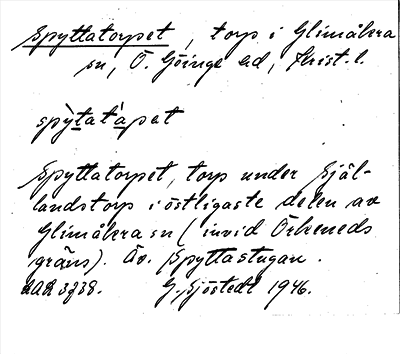 Spyttatorpet, torp i Glimåkra
sn, Ö. Göinge hd, Krist. l.
spỳtatápet
Spyttatorpet, torp under Själ-
landstorp i östligaste delen av
Glimåkra sn (invid Örkeneds
gräns). Äv. Spyttastugan.
LAL 3738. G. Sjöstedt 1946.